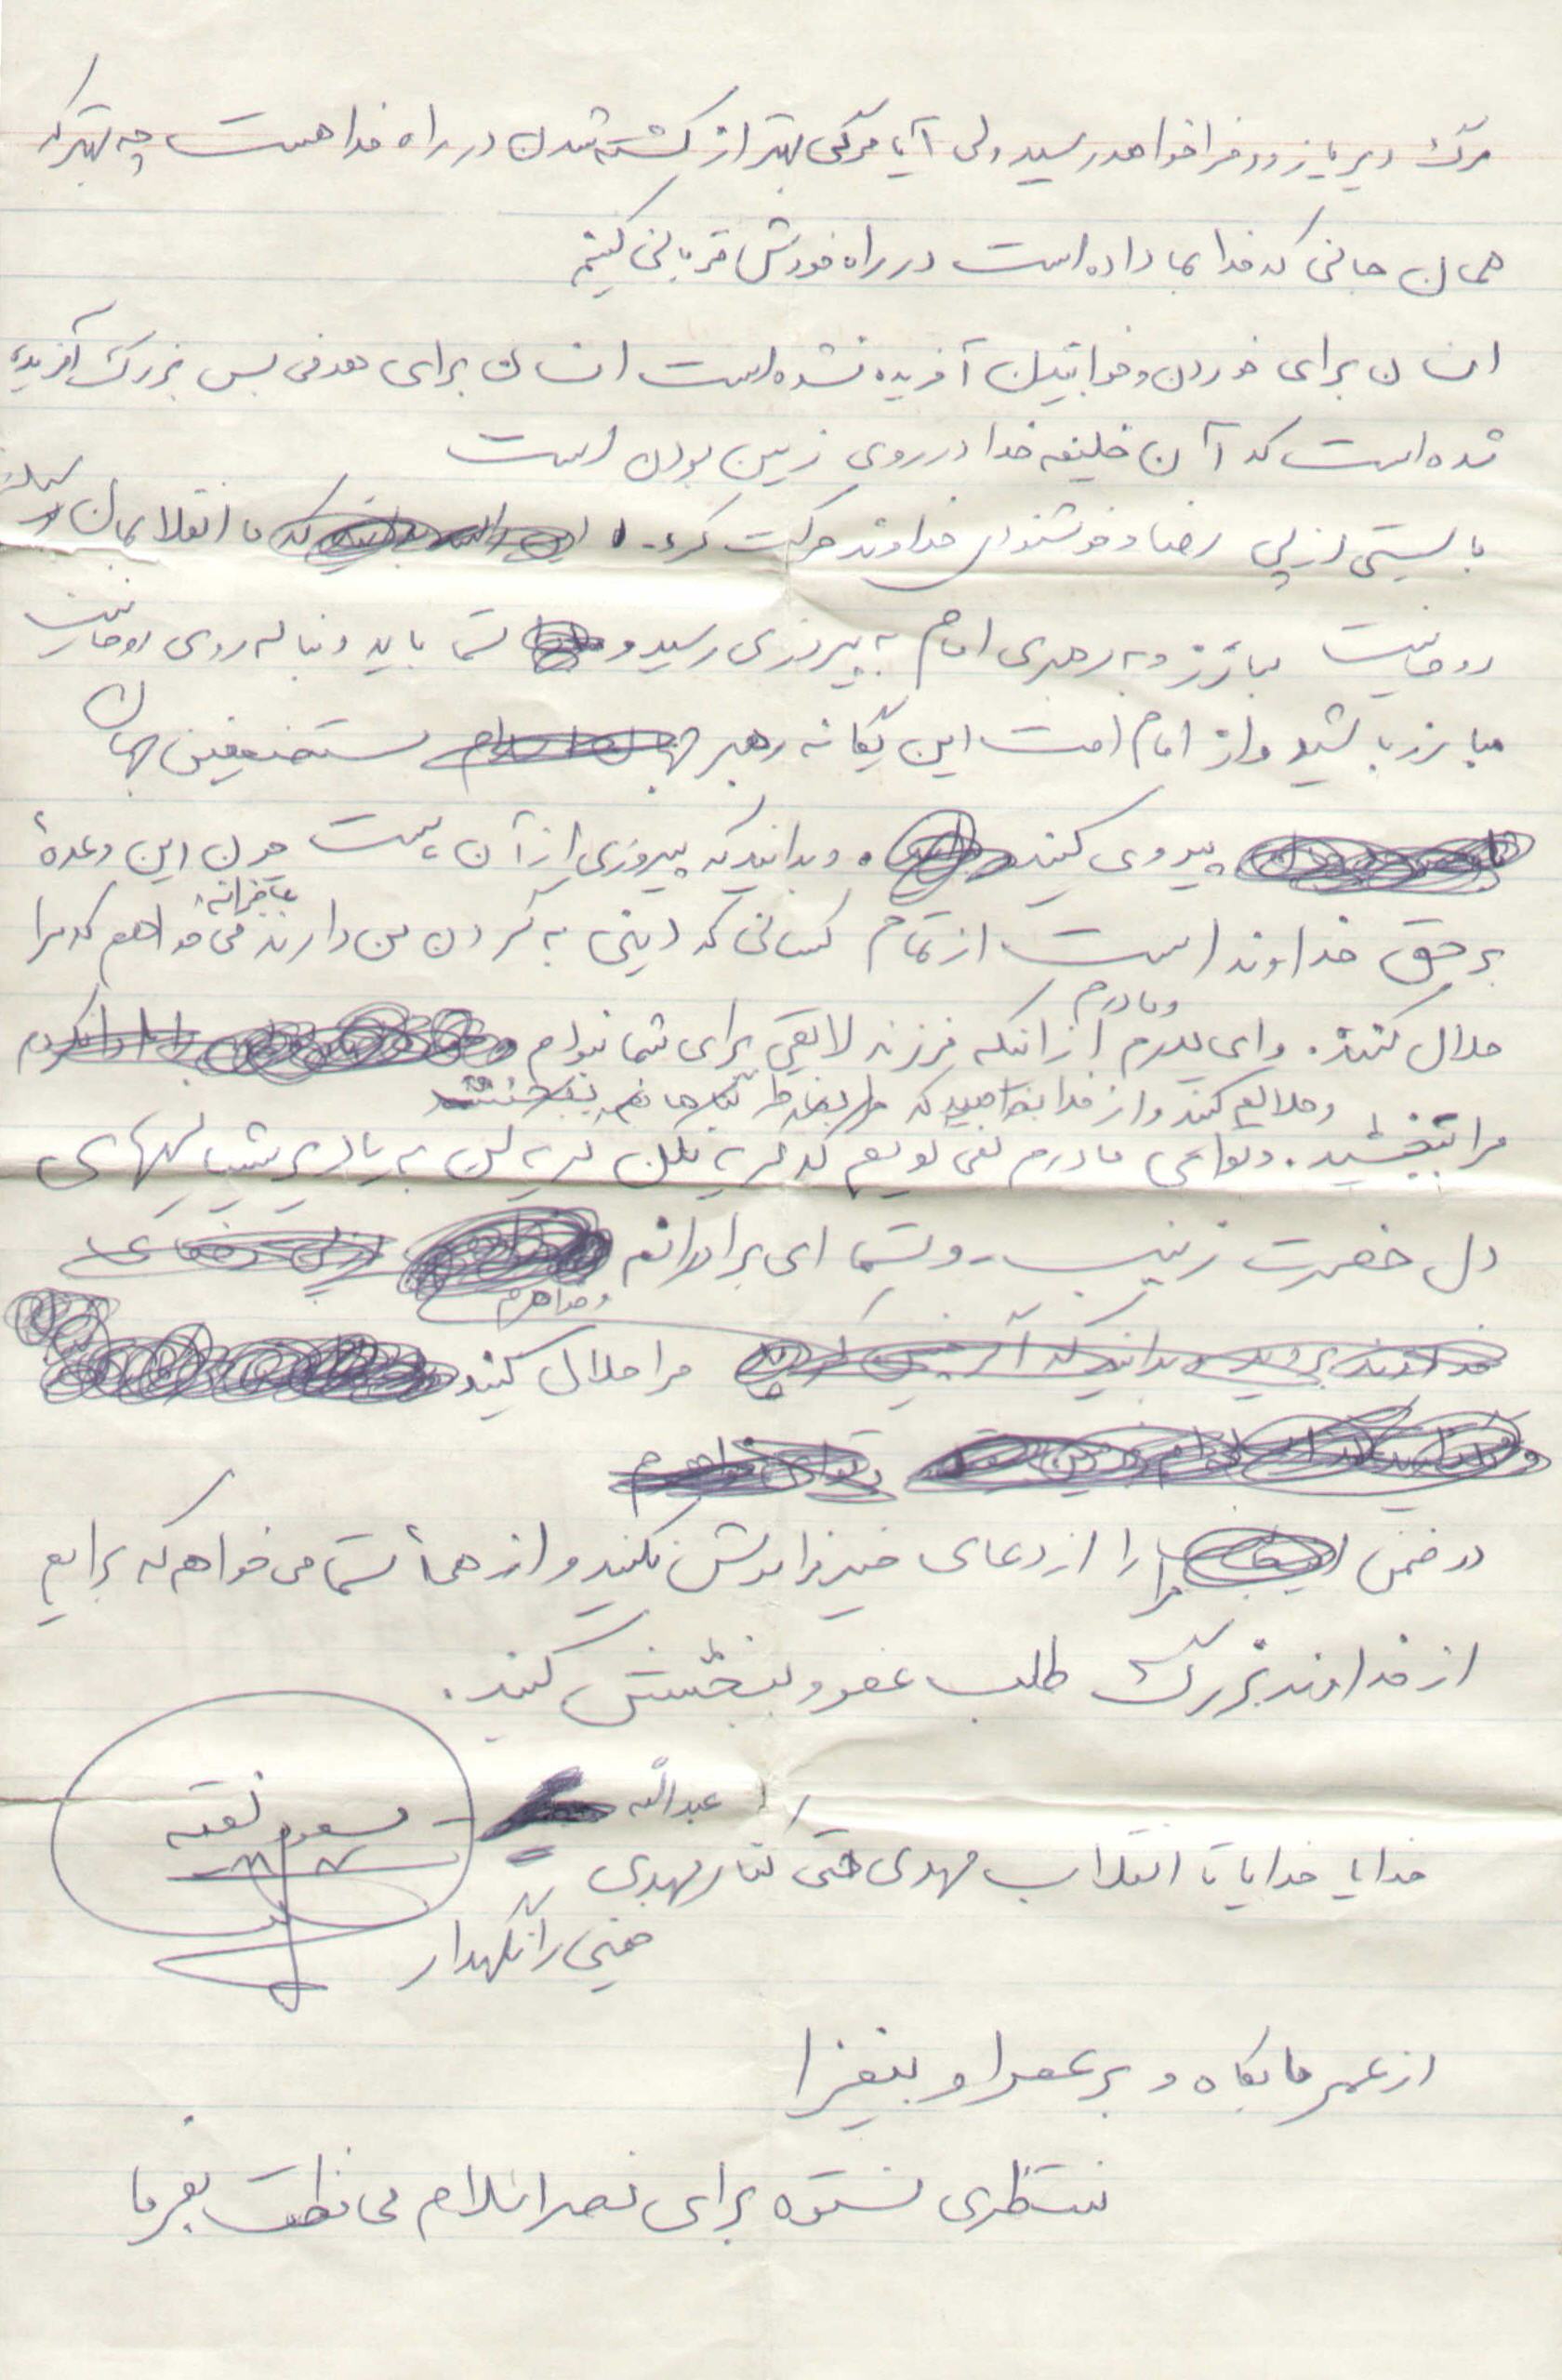 مرگ دیر یا زود فرا خواهد رسید ولی آیا مرگی بهتر از کشته شدن در راه خدا هست چه بهتر که
همان جانی که خدا بما داده است در راه خودش قربانی کنیم
انسان برای خوردن و خوابیدن آفریده نشده است انسان برای هدفی بس بزرگ آفریده
شده است که آن خلیفه خدا در روی زمین بودن است
بایستی از پی رضا و خوشنودی خداوند حرکت کرد. که ما انقلابمان بوسیله
روحانیت مبارز و به رهبری امام به پیروزی رسید و شما باید دنباله روی روحانیت
مبارز باشید و از امام امت این یگانه رهبر مستضعفین جهان
پیروی کنید و بدانید که پیروزی از آن ماست چون این وعدهٔ
بر حق خداوند است از تمام کسانی که دینی به گردن من دارند عاجزانه می خواهم که مرا
حلال کنند. و ای پدرم و مادرم از اینکه فرزند لایقی برای شما نبودم
و حلالم کنید و از خدا بخواهید که گناهانم
مرا ببخشید. و تو ای مادرم نمی گویم که گریه نکن گریه کن به یاد
دل حضرت زینب و شما ای برادرانم
و خواهرم
مرا حلال کنید
در ضمن مرا از دعای خیر فراموش نکنید و از همهٔ شما می خواهم که برایم
از خداوند بزرگ طلب عفو و بخشش کنید.
عبدالله
مسعود
خدایا خدایا تا انقلاب مهدی حتی کنار مهدی
خمینی را نگهدار
از عمر ما بکاه و بر عمر او بیفزا
منتظری نستوه برای نصر اسلام محافظت بفرما